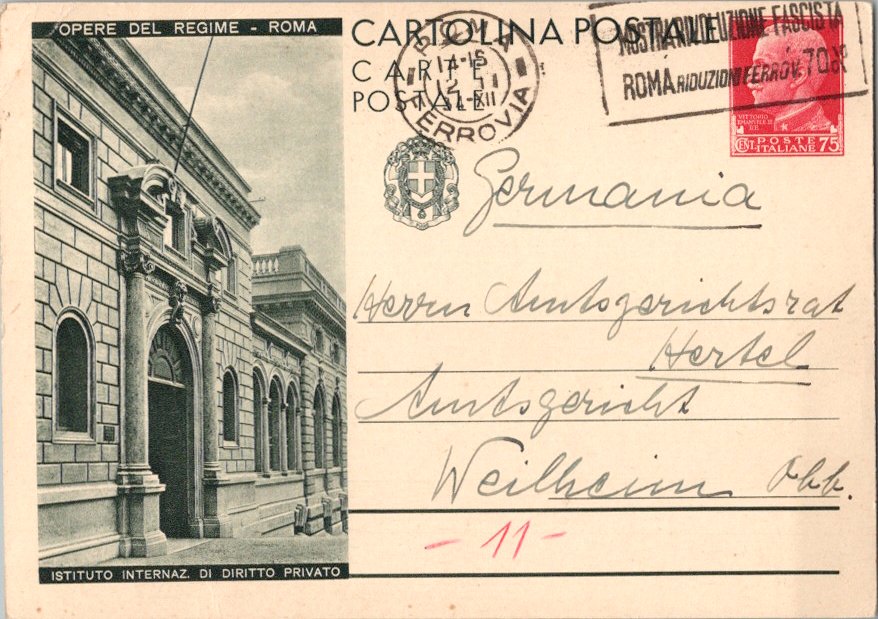 OPERE DEL REGIME - ROMA
CARTOLINA POSTALE
CARTE
POSTALE
ROMA
14-15
12 1
XII
FERROVIA
MOSTRA RIVOLUZIONE FASCISTA
ROMA RIDUZIONI FERROV. 70%
VITTORIO
EMANUELE III
CENT. POSTE ITALIANE 75
Germania
Herrn Amtsgerichtsrat
Hertel
Amtsgericht
Weilheim Obb.
- 11 -
ISTITUTO INTERNAZ. DI DIRITTO PRIVATO